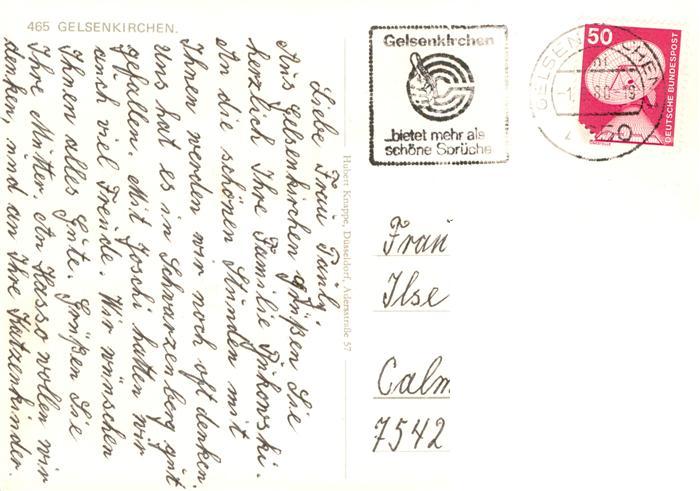 465 GELSENKIRCHEN.
Liebe Frau
Aus Gelsenkirchen grüßen Sie
herzlich Ihre Familie
An die schönen Stunden mit
Ihnen werden wir noch oft denken.
Uns hat es in Schwarzenberg gut
gefallen. Mit Joschi hatten wir
auch viel Freude. Wir wünschen
Ihnen alles Gute. Grüßen Sie
Ihre Mutter. An Hasso wollen wir
denken, und an Ihre Katzenkinder.
Hubert Knappe, Düsseldorf, Adersstraße 57
Gelsenkirchen
...bietet mehr als
schöne Sprüche
GELSENKIRCHEN
50
DEUTSCHE BUNDESPOST
Frau
Ilse
Calm
7542